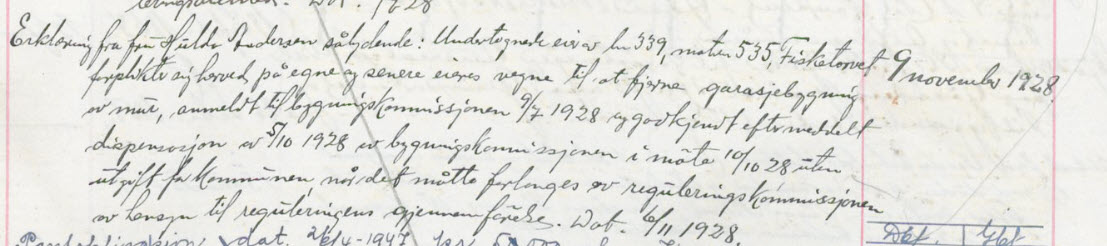 Dat. 1928
Erklæring fra fru Hulda Andersen sålydende: Undertegnede eier av br 339, matr 535, Fisketorvet 9 november 1928.
forplikter sig herved på egne og senere eieres vegne til at fjerne garasjebygning
av mur, anmeldt til bygningskommissjonen 9/7 1928 og godkjendt efter meddelt
dispensasjon av 5/10 1928 av bygningskommissjonen i møte 10/10 28 uten
utgift for kommunen når det måtte forlanges av reguleringskommissjonen
av hensyn til reguleringens gjennemførelse. Dat. 6/11 1928.
dat. 26/4-1947